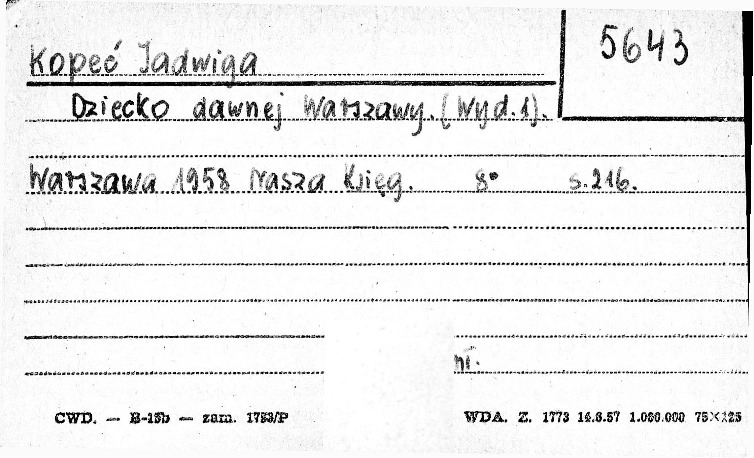 5643
Kopeć Jadwiga
Dziecko dawnej Warszawy. (Wyd. 1).
Warszawa 1958 Nasza Księg. 8° s. 216.
CWD. — B-15b — zam. 1753/P
WDA. Z. 1773 14.6.57 1.000.000 75×125